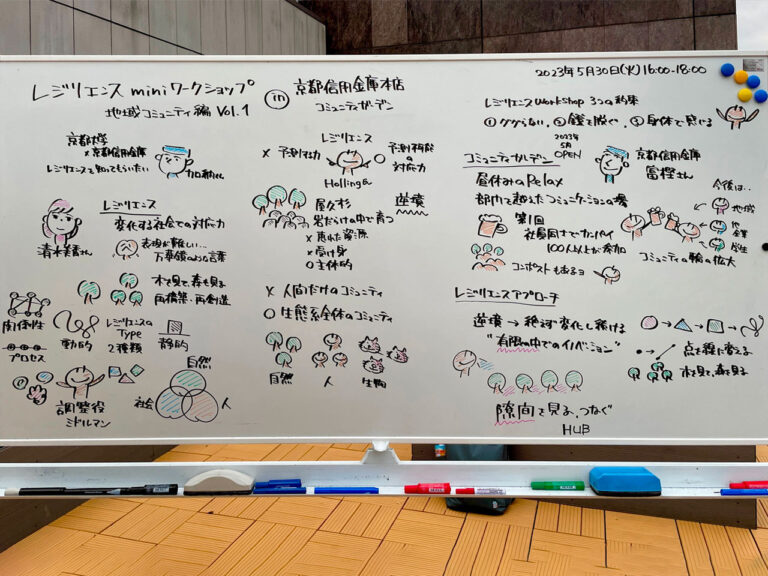 レジリエンス miniワークショップ
地域コミュニティ編 Vol.1
in
京都信用金庫本店
コミュニティガーデン
2023年5月30日(火) 16:00-18:00
レジリエンスWorkshop 3つの約束
①ググらない、②鎧を脱ぐ、③身体で感じる
京都大学
×京都信用金庫
レジリエンスを知ってもらいたい
加納くん
レジリエンス
変化する社会での対応力
清水美香さん
表現が難しい…
万華鏡のような言葉
木を見て、森も見る
再構築・再創造
関係性
プロセス
動的
レジリエンスの
Type
2種類
静的
調整役
ミドルマン
自然
社会
人
レジリエンス
× 予測する力
○ 予測不能
の
対応力
Holling氏
屋久杉
逆境
岩だけの中で育つ
×恵れた資源
×受け身
○主体的
× 人間だけのコミュニティ
○ 生態系全体のコミュニティ
自然
人
生物
コミュニティガーデン
2023年
5月
OPEN
京都信用金庫
冨樫さん
昼休みのRelax
部門を越えたコミュニケーションの場
第1回
社員同士でカンパイ
100人以上が参加
コンポストもあるョ
今後は…
地域
他
企業
学生
コミュニティの輪の拡大
レジリエンスアプローチ
逆境→絶えず変化し続ける
"有限の中でのイノベーション"
点を線に変える
木を見て、森を見る
隙間を見る、つなぐ
HUB